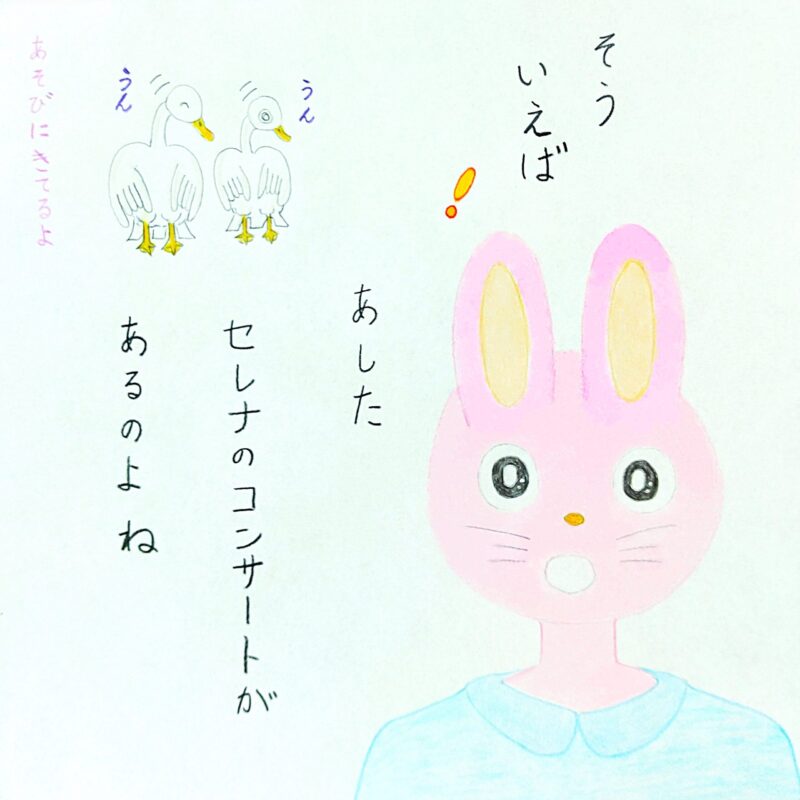 そう
いえば
！
あした
セレナのコンサートが
あるのよね
うん
うん
あそびにきてるよ